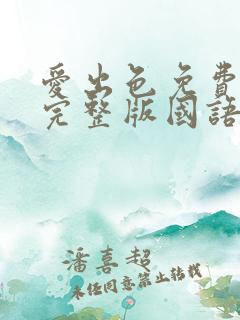 愛出色免費
完整版國語
潘喜超
未经同意禁止转载